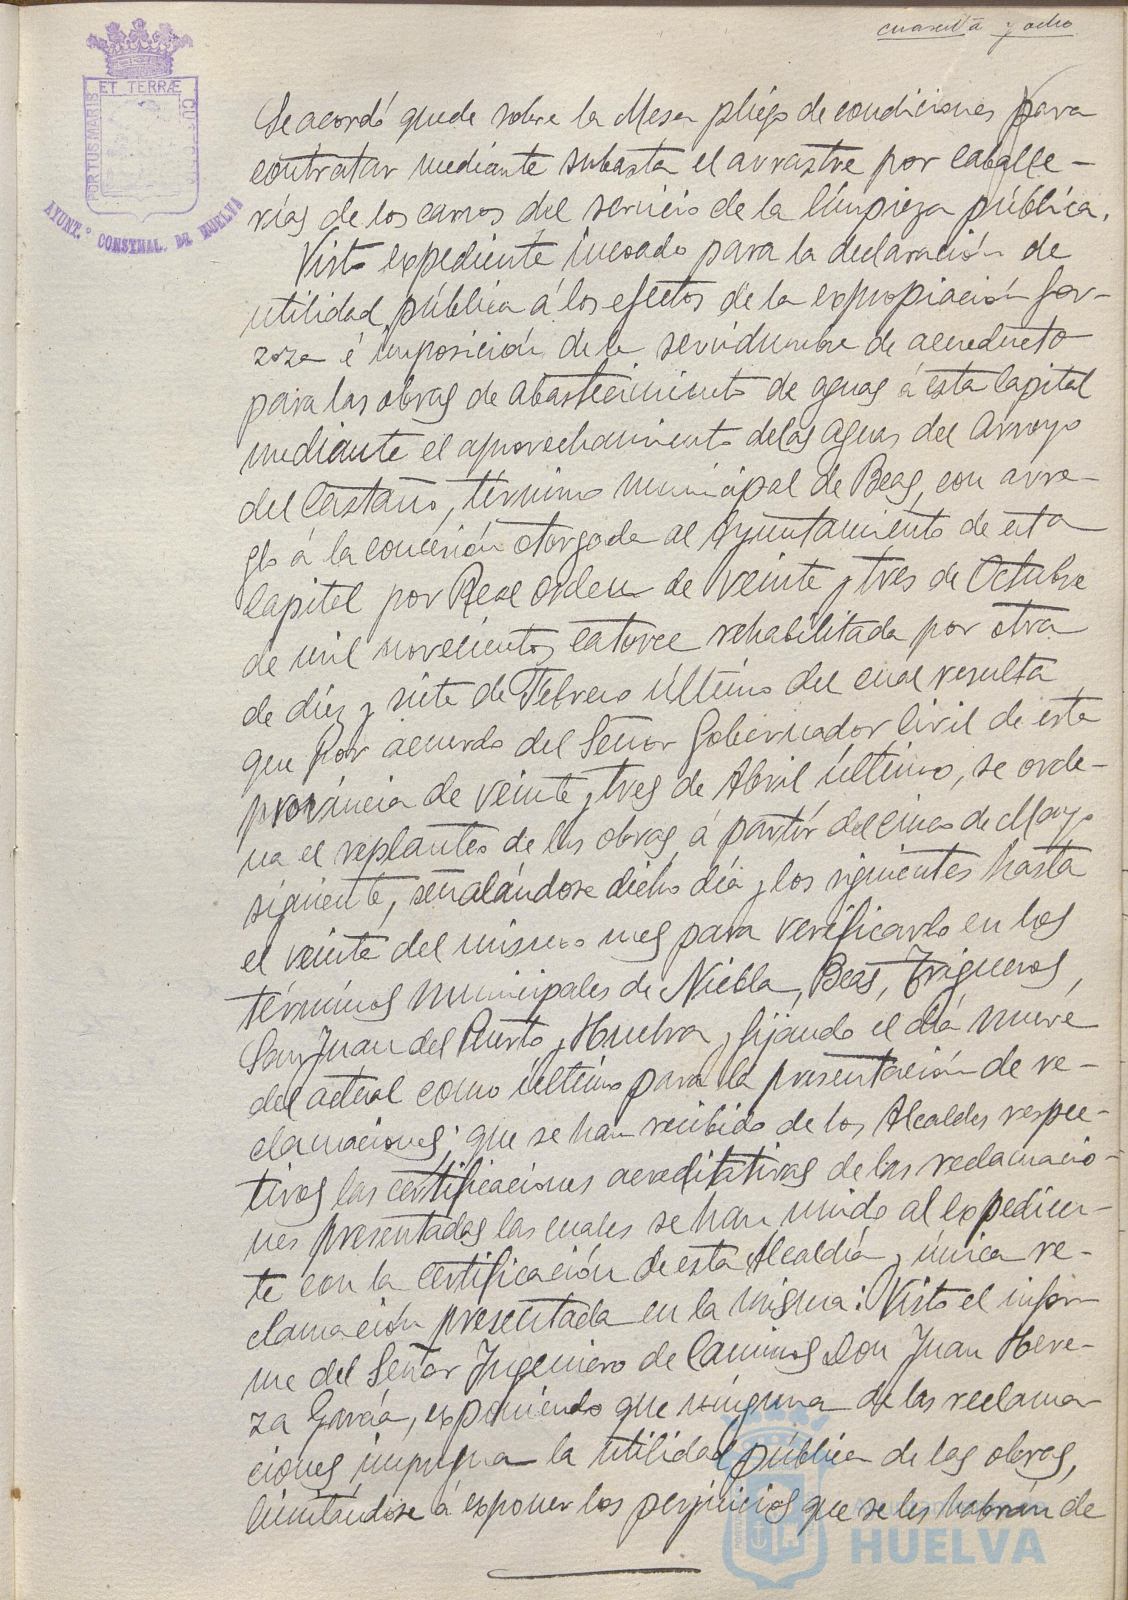 cuarenta y ocho
PORTUS MARIS ET TERRÆ CUSTODIA
AYUNT.º CONSTNAL. DE HUELVA
Se acordó quede sobre la Mesa pliego de condiciones para
contratar mediante subasta el arrastre por caballe-
rías de los carros del servicio de la limpieza pública.
Visto expediente incoado para la declaración de
utilidad pública á los efectos de la expropiación for-
zoza é imposición de la servidumbre de acueducto
para las obras de abastecimiento de aguas á esta Capital
mediante el aprovechamiento de las aguas del Arroyo
del Castaño, término municipal de Beas, con arre-
glo á la concesión otorgada al Ayuntamiento de esta
Capital por Real orden de veinte y tres de Octubre
de mil novecientos catorce rehabilitada por otra
de diez y siete de Febrero último del cual resulta
que por acuerdo del Señor Gobernador Civil de esta
provincia de veinte y tres de Abril último, se orde-
na el replanteo de las obras á partir del cinco de Mayo
siguiente, señalándose dicho día y los siguientes hasta
el veinte del mismo mes para verificarlo en los
términos municipales de Niebla, Beas, Trigueros,
San Juan del Puerto y Huelva y fijando el día nueve
del actual como último para la presentación de re-
clamaciones; que se han recibido de los Alcaldes respec-
tivos las certificaciones acreditativas de las reclamacio-
nes presentadas las cuales se han unido al expedien-
te con la certificación de esta Alcaldía y única re-
clamación presentada en la misma: Visto el infor-
me del Señor Ingeniero de Caminos Don Juan Here-
za García, exponiendo que ninguna de las reclama-
ciones impugna la utilidad pública de las obras,
limitándose á exponer los perjuicios que se les habrán de
HUELVA